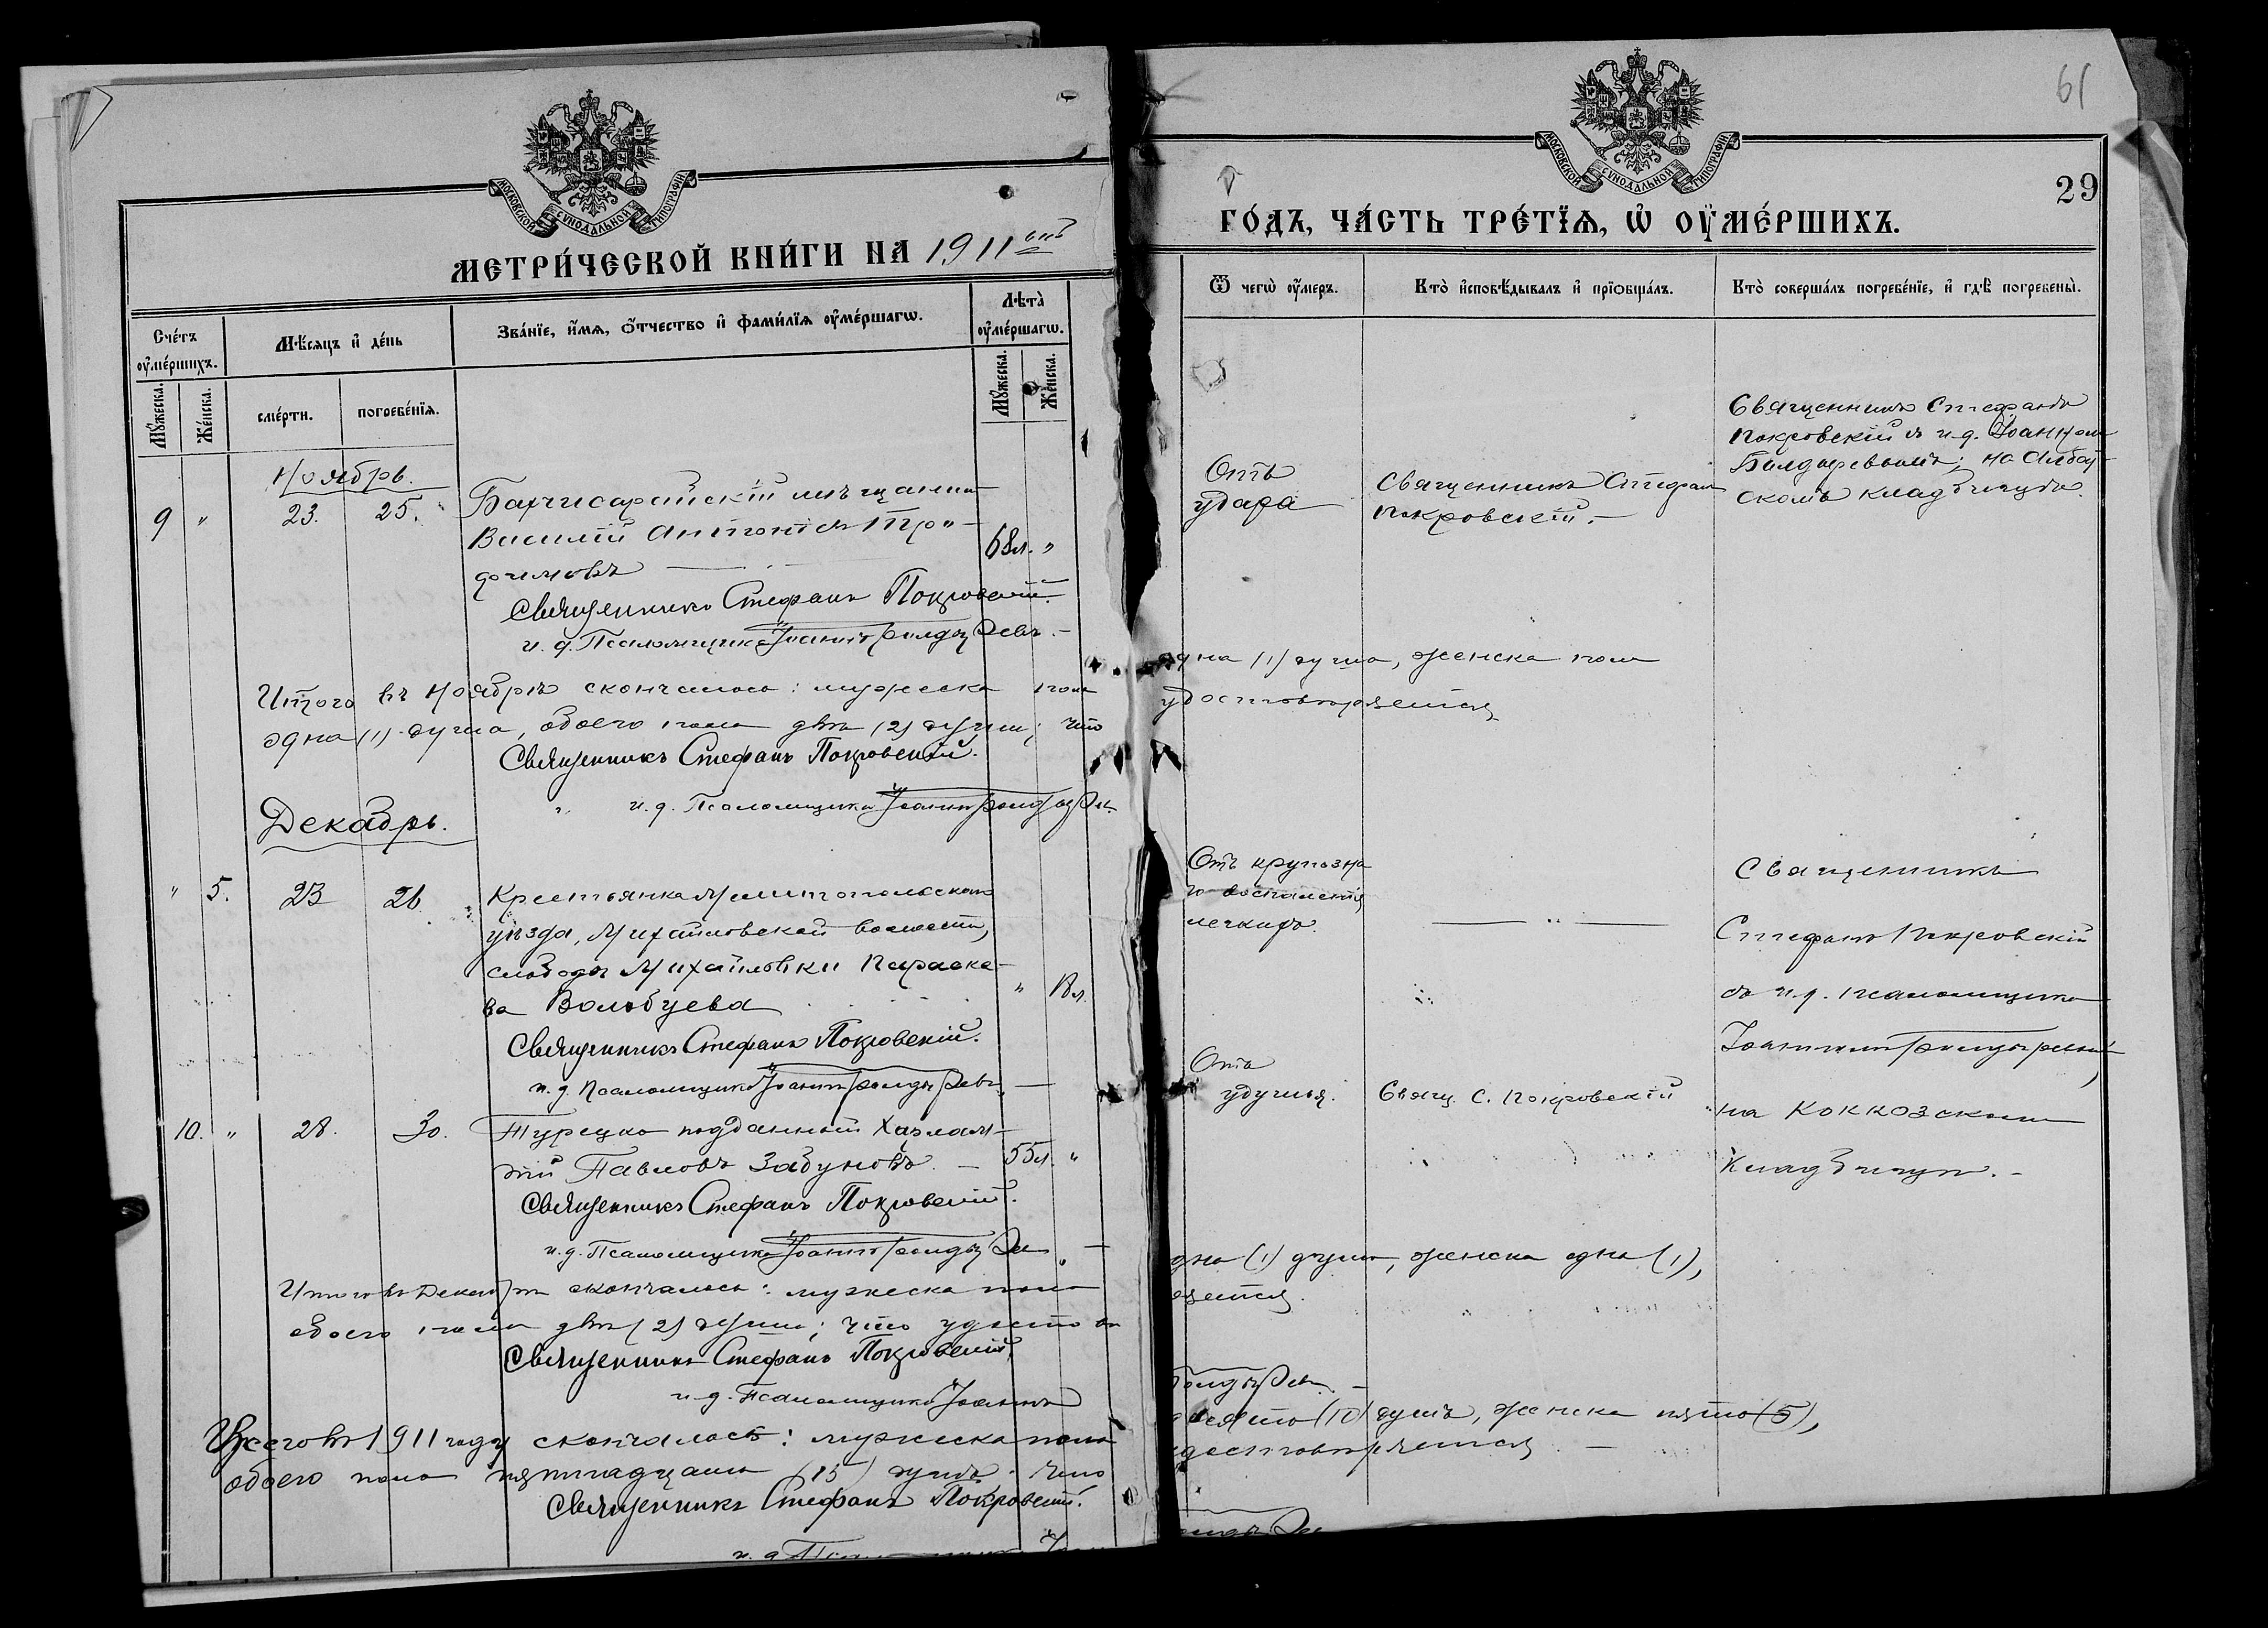 МОСКОВСКОЙ СѴНОДАЛЬНОЙ ТИПОГРАФІИ
МЕТРИ́ЧЕСКОЙ КНИ́ГИ НА 1911
Сче́тъ оу҆ме́ршихъ.
Мѣ́сяцъ и҆ де́нь
Зва́нїе, и҆́мя, ѻ҆́тчество и҆ фами́лїя оу҆ме́ршагѡ.
Лѣта̀ оу҆ме́ршагѡ.
Мꙋ́жеска.
Же́нска.
сме́рти.
погребе́нїя.
Мꙋ́жеска.
Же́нска.
Ноябрь.
9 " 23. 25. Бахчисарайскій мѣщанинъ
Василій Антоніевъ Тро-
68 л. "
Священникъ Стефанъ Покровскій.
и. д. Псаломщика Іоаннъ Болдыревъ. -
Итого въ Ноябрѣ скончалось: мужеска пола
одна (1) душа, обоего пола двѣ (2) души; что
Священникъ Стефанъ Покровскій.
и. д. Псаломщика Іоаннъ Болдыревъ.
Декабрь.
" 5. 23 26 Крестьянка Мелитопольскаго
уѣзда, Михайловской волости,
слободы Михайловки Параске-
ва Волобуева " 18 л.
Священникъ Стефанъ Покровскій.
и. д. Псаломщика Іоаннъ Болдыревъ. -
10. " 28. 30. Турецко подданный Харлам-
пій Павловъ Забуновъ. - 55 л. "
Священникъ Стефанъ Покровскій.
и. д. Псаломщика Іоаннъ Болдыревъ -
Итого въ Декабрѣ скончалось: мужеска пола
обоего пола двѣ (2) души; что удосто вѣ
Священникъ Стефанъ Покровскій.
и. д. Псаломщика Іоаннъ
Всего въ 1911 году скончалось: мужеска пола
обоего пола пятнадцать (15) душъ. Что
Священникъ Стефанъ Покровскій.
61
МОСКОВСКОЙ СѴНОДАЛЬНОЙ ТИПОГРАФІИ
29
ГО́ДЪ, ЧА́СТЬ ТРЕ́ТЇЯ, Ѡ҆ ОУ҆МЕ́РШИХЪ.
Ѿ чегѡ̀ оу҆́меръ.
Кто̀ и҆сповѣ́дывалъ и҆ прїѻбща́лъ.
Кто̀ соверша́лъ погребе́нїе, и҆ гдѣ̀ погребены̀.
Священникъ Стефанъ
Покровскій съ и. д. Іоанномъ
Болдыревымъ; на Албат-
скомъ кладбищѣ.
Отъ
удара
Священникъ Стефанъ
Покровскій. -
одна (1) душа, женска пола
удостовѣряется
Отъ крупозна
го воспаленія
легкихъ.
Священникъ
Стефанъ Покровскій
съ и. д. псаломщика
Іоанномъ Болдыревымъ,
на Коккозскомъ
кладбищѣ. -
Отъ
удушья.
Свящ. С. Покровскій
дна (1) душа, женска одна (1),
ряется.
Болдыревъ. -
десять (10) душъ, женска пять (5),
удостовѣряется. -